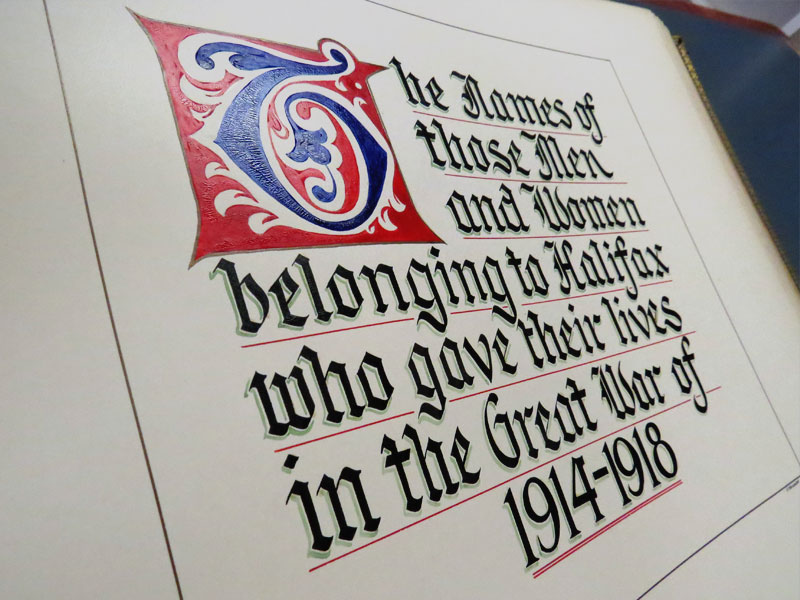 The Names of
those Men
and Women
belonging to Halifax
who gave their lives
in the Great War of
1914-1918